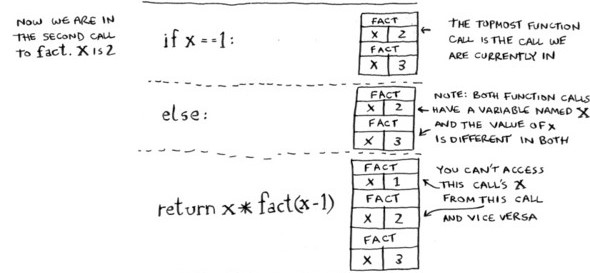 NOW WE ARE IN
THE SECOND CALL
TO fact. X IS 2
if x==1:
FACT
X 2
FACT
X 3
THE TOPMOST FUNCTION
CALL IS THE CALL WE
ARE CURRENTLY IN
else:
FACT
X 2
FACT
X 3
NOTE: BOTH FUNCTION CALLS
HAVE A VARIABLE NAMED X
AND THE VALUE OF X
IS DIFFERENT IN BOTH
return x*fact(x-1)
FACT
X 1
FACT
X 2
FACT
X 3
YOU CAN'T ACCESS
THIS CALL'S X
FROM THIS CALL
AND VICE VERSA